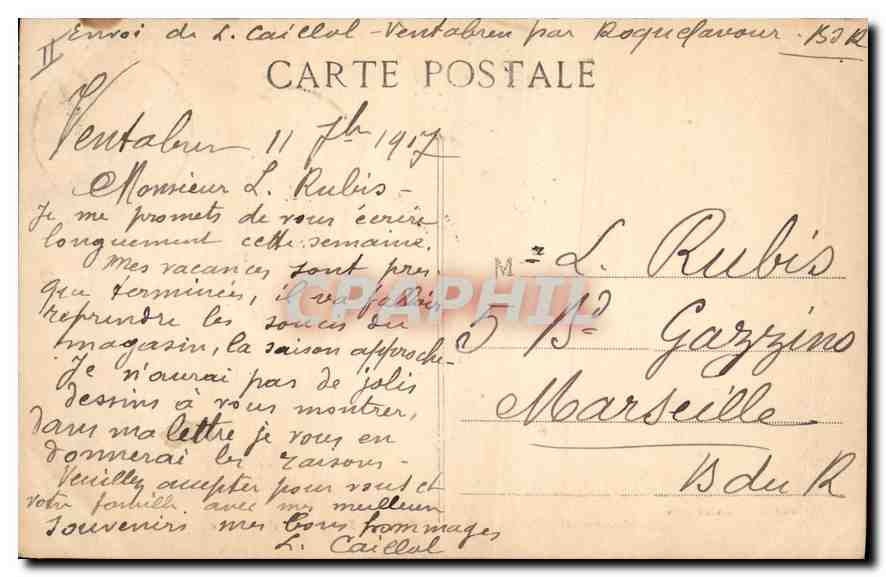 II Envoi de L. Caillol - Ventabren par Roquefavour. B d R
CARTE POSTALE
Ventabren 11 7bre 1917
Monsieur L. Rubis -
Je me promets de vous écrire
longuement cette semaine.
Mes vacances sont pres-
que terminées, il va falloir
reprendre les soucis du
magasin, la saison approche.
Je n'aurai pas de jolis
dessins à vous montrer,
dans ma lettre je vous en
donnerai les raisons -
Veuillez accepter pour vous et
votre famille avec mes meilleurs
souvenirs mes bons hommages
L. Caillol
Mr L. Rubis
5 Bd Gazzino
Marseille
B du R
CPAPHIL